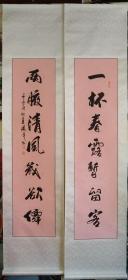 一杯春露暂留客
两腋清风几欲仙